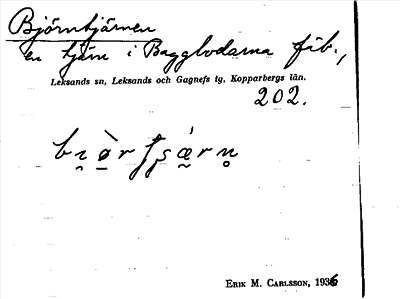 Björntjärnen
en tjärn i Bagglbodarna fäb.,
Leksands sn, Leksands och Gagnefs tg, Kopparbergs län.
202.
ERIK M. CARLSSON, 1936